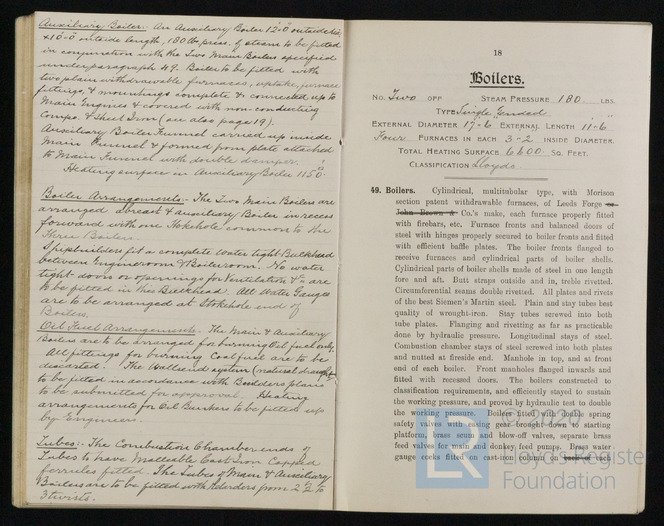 Auxiliary Boiler:- An Auxiliary Boiler 12'-0" outside dia
x 10'-0" outside length, 180 lbs press. of steam to be fitted
in conjunction with the Two Main Boilers specified
under paragraph 49. Boiler to be fitted with
two plain withdrawable furnaces, uptake, furnace
fittings, & mountings complete & connected up to
Main Engines & covered with non-conducting
Compo. & Sheet Iron (see also page 19).
Auxiliary Boiler Funnel carried up inside
Main Funnel & formed from plate attached
to Main Funnel with double damper.
Heating surface in Auxiliary Boiler 1150
Boiler Arrangements:- The Two Main Boilers are
arranged abreast & auxiliary Boiler in recess
forward with one Stokehole common to the
Three Boilers.
Shipbuilders fit a complete water tight Bulkhead
between Engineroom & Boilerroom. No water
tight door or openings for Ventilation &c are
to be fitted in this Bulkhead. All Water Gauges
are to be arranged at Stokehole end of
Boilers.
Oil Fuel Arrangements:- The Main & Auxiliary
Boilers are to be arranged for burning Oil fuel only.
All fittings for burning Coal fuel are to be
discarded. The Wallsend system (natural draught)
to be fitted in accordance with Builders plans
to be submitted for approval. Heating
arrangements for Oil Bunkers to be fitted up
by Engineers.
Tubes:- The Combustion Chamber ends of
Tubes to have Malleable Cast Iron Capped
ferrules fitted. The Tubes of Main & Auxiliary
Boilers are to be fitted with Retarders from 2½ to
3 twists.
18
Boilers.
No. Two off Steam Pressure 180 lbs.
Type Single Ended
External Diameter 17-6 External Length 11-6
Four Furnaces in each 3-2 Inside Diameter.
Total Heating Surface 6600 Sq. Feet.
Classification Lloyds.
49. Boilers. Cylindrical, multitubular type, with Morison
section patent withdrawable furnaces, of Leeds Forge or
John Brown & Co.'s make, each furnace properly fitted
with firebars, etc. Furnace fronts and balanced doors of
steel with hinges properly secured to boiler fronts and fitted
with efficient baffle plates. The boiler fronts flanged to
receive furnaces and cylindrical parts of boiler shells.
Cylindrical parts of boiler shells made of steel in one length
fore and aft. Butt straps outside and in, treble rivetted.
Circumferential seams double rivetted. All plates and rivets
of the best Siemen's Martin steel. Plain and stay tubes best
quality of wrought-iron. Stay tubes screwed into both
tube plates. Flanging and rivetting as far as practicable
done by hydraulic power. Longitudinal stays of steel.
Combustion chamber stays of steel screwed into both plates
and nutted at fireside end. Manhole in top, and at front
end of each boiler. Front manholes flanged inwards and
fitted with recessed doors. The boilers constructed to
classification requirements, and efficiently stayed to sustain
the working pressure, and proved by hydraulic test to double
the Boilers fitted with double spring
safety gear brought down to starting
platform, and blow-off valves, separate brass
feed valves for main and donkey feed pumps. Brass water
gauge cocks fitted on cast-iron column on each
© 2020
LR
Lloyd's Register
Foundation